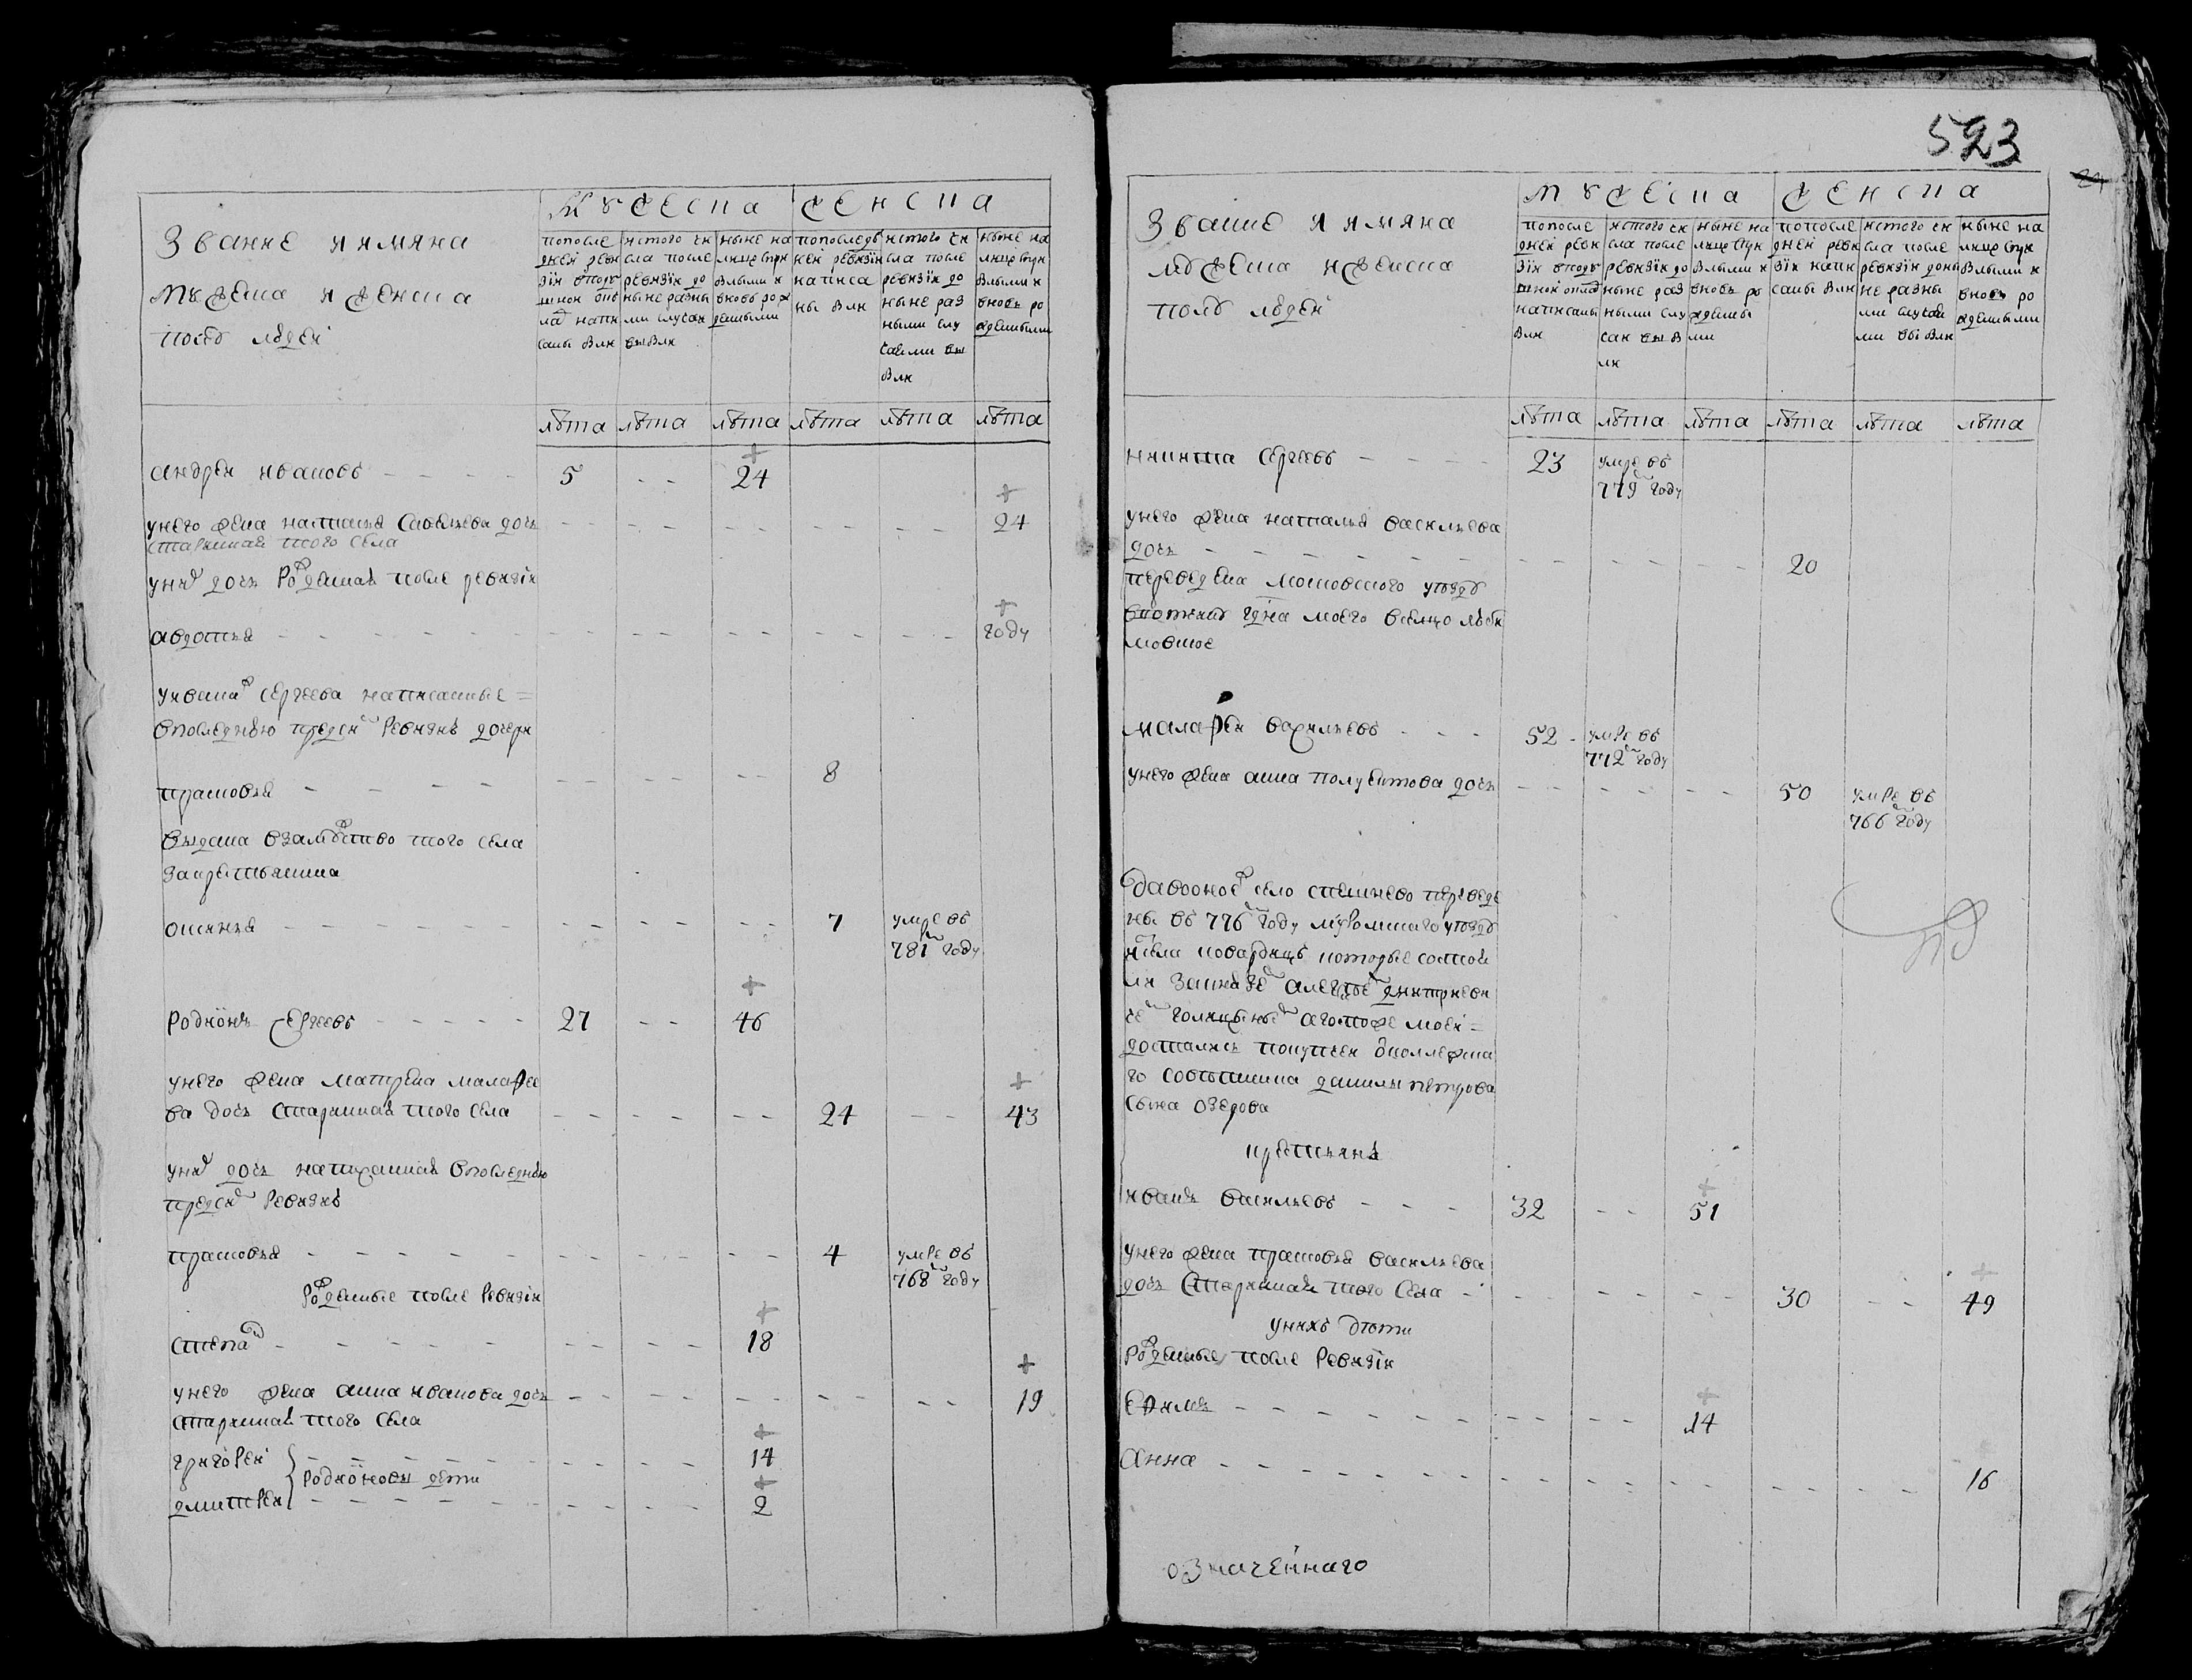 Звание и имяна
мужеска и женска
полу людей
Мужеска
женска
по последней ревизии в подушной оклад написаны были
из того числа после ревизии до ныне разными случаи выбыли
ныне на лицо с прибылыми и вновь рожденными
по последней ревизии написаны были
из того числа после ревизии до ныне разными случаями выбыли
ныне на лицо с прибылыми и вновь рожденными
лета лета лета лета лета лета
андрей ивановъ 5 24
у него жена наталья савельева дочь 24
старинная того села
у них дочь рожденная после ревизии
авдотья году
у ивана сергеева написанные
в последнюю пред сим ревизию дочери
прасковья 8
выдана в замужство того села
за крестьянина
аксинья 7 умре въ
781м году
родионъ сергеевъ 27 46
у него жена матрена малафее
ва дочь старинная того села 24 43
у них дочь написанная в последнюю
пред сим ревизию
прасковья 4 умре въ
768м году
рожденные после ревизии
степан 18
у него жена анна иванова дочь 19
старинная того села
григорей 14
родионовы дети
дмитрей 2
523
24
Звание и имяна
мужеска и женска
полу людей
мужеска
женска
по последней ревизии в подушной оклад написаны были
из того числа после ревизии до ныне разными случаи выбыли
ныне на лицо с прибылыми и вновь рожденными
по последней ревизии написаны были
из того числа после ревизии до ныне разными случаями выбыли
ныне на лицо с прибылыми и вновь рожденными
лета лета лета лета лета лета
никита сергеевъ 23 умре въ
779м году
у него жена наталья васильева
дочь 20
переведена московского уезду
малафеи васильевъ 52 умре въ
772м году
у него жена анна полуехтова дочь 50 умре въ
766м году
да во оное ж село спешнево переведе
ны въ 776м году муромского уезду
ис села которые состоя
ли за князем алексеем дмитревн
чем голицыным а потом мне
достались покупкеи от коллежска
го советника данилы петрова
сына озерова
крестьянъ
иванъ васильевъ 32 51
у него жена прасковья васильева
дочь старинная того села 30 49
у нихъ дети
рожденные после ревизии
ефимъ 14
анна 16
означенного